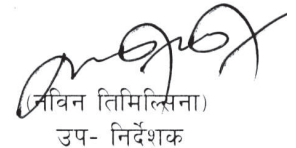 (नविन तिमिल्सिना)
उप- निर्देशक